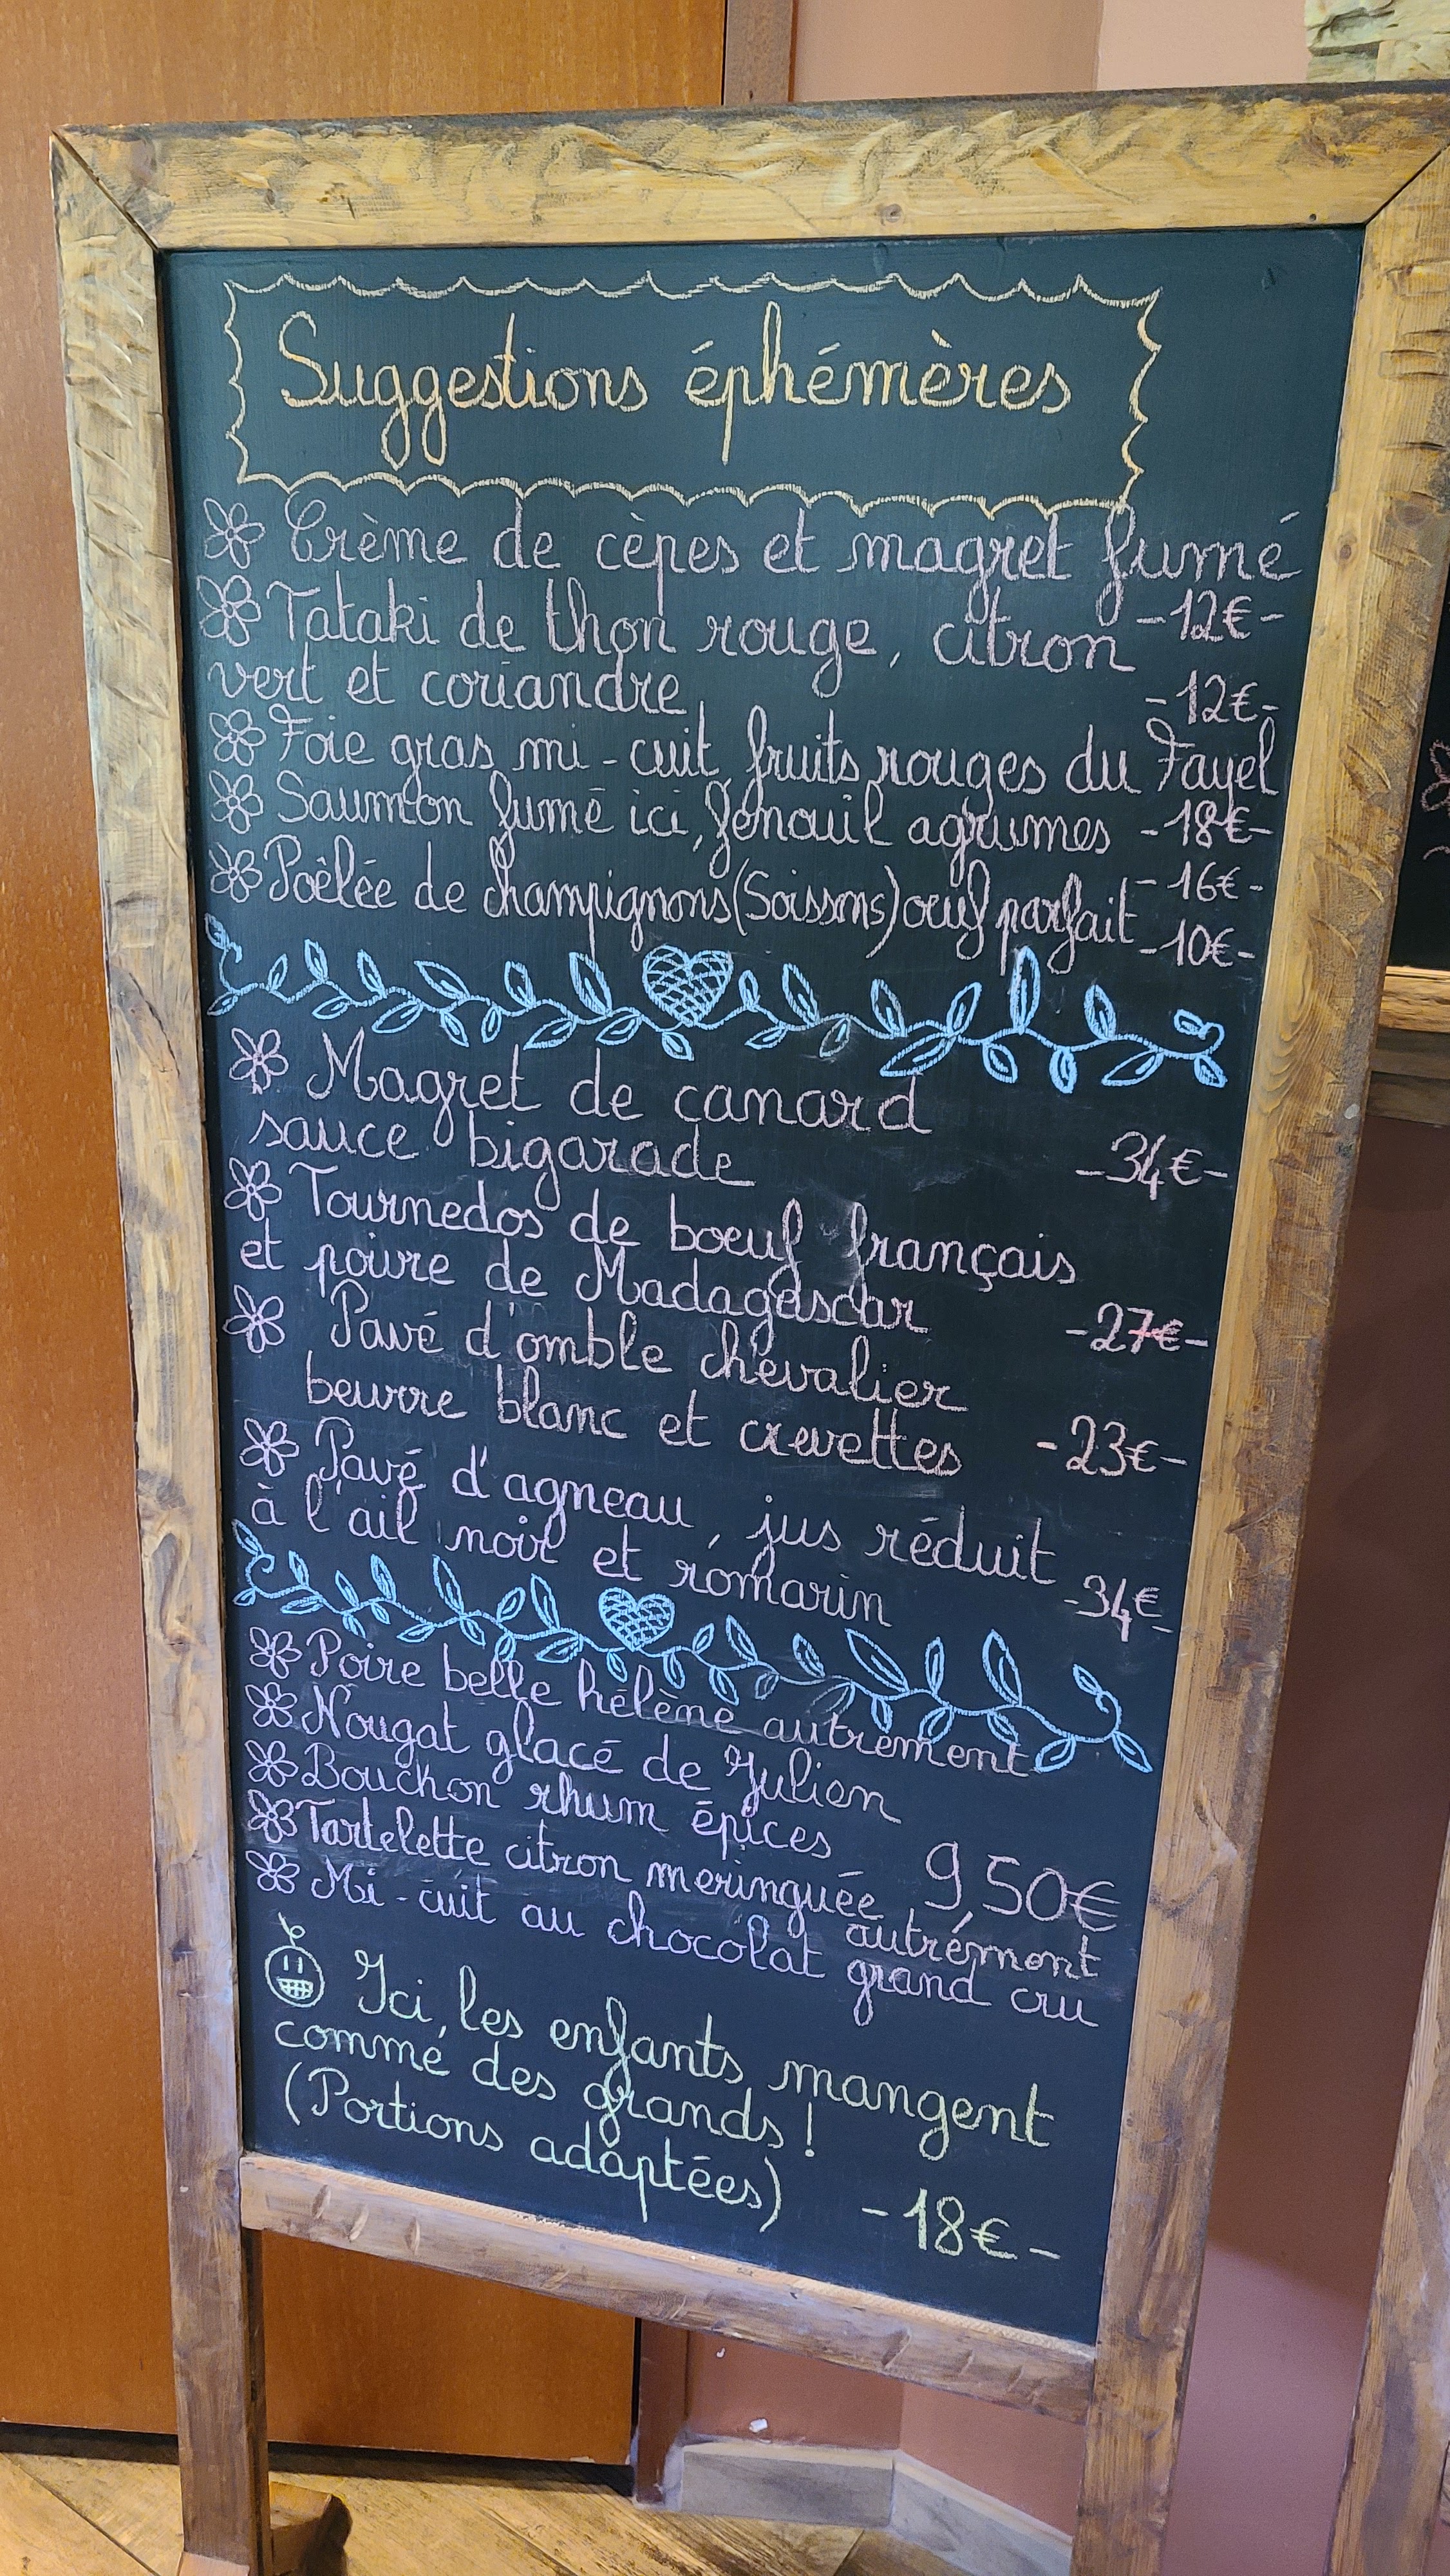 Suggestions éphémères
Crème de cèpes et magret fumé
-12€-
Tataki de thon rouge, citron
vert et coriandre -12€-
Foie gras mi-cuit, fruits rouges du Fayel
-18€-
Saumon fumé ici, fenouil agrumes
-16€-
Poêlée de champignons (Soissons) oeuf parfait -10€-
Magret de canard
sauce bigarade -34€-
Tournedos de boeuf français
et poivre de Madagascar -27€-
Pavé d'omble chevalier
beurre blanc et crevettes -23€-
Pavé d'agneau, jus réduit
à l'ail noir et romarin -34€-
Poire belle hélène autrement
Nougat glacé de Julien
Bouchon rhum épices
9,50€
Tartelette citron meringuée autrement
Mi-cuit au chocolat grand cru
Ici, les enfants mangent
comme des grands!
(Portions adaptées) -18€-